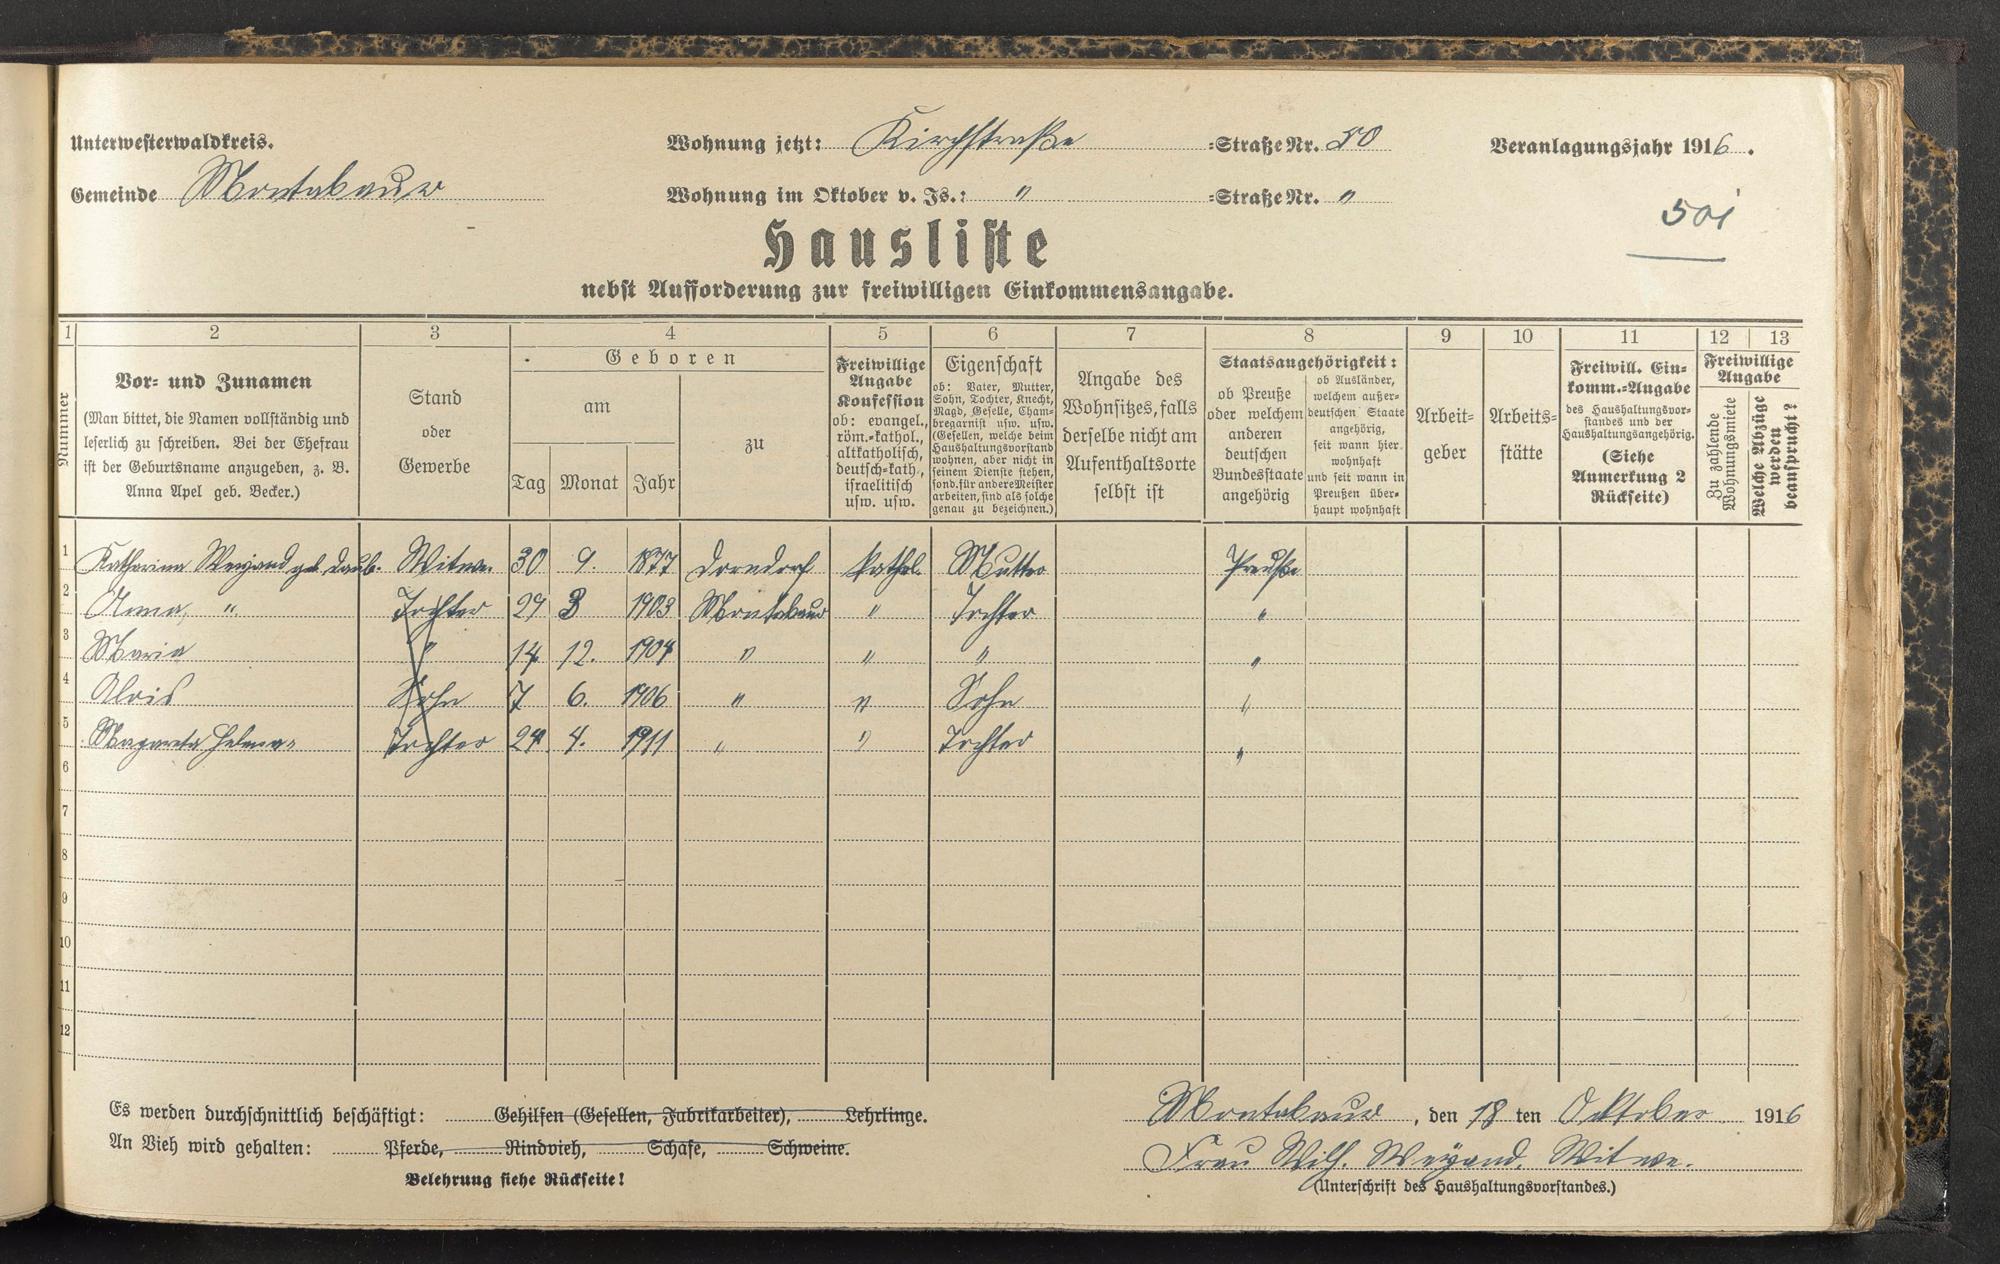 Unterwesterwaldkreis.
Wohnung jetzt: Kirchstraße =Straße Nr. 50
Veranlagungsjahr 1916.
Gemeinde Montabaur
Wohnung im Oktober v. Js.: " =Straße Nr. "
501
Hausliste
nebst Aufforderung zur freiwilligen Einkommensangabe.
1 2 3 4 5 6 7 8 9 10 11 12 13
Nummer
Vor= und Zunamen
(Man bittet, die Namen vollständig und
leserlich zu schreiben. Bei der Ehefrau
ist der Geburtsname anzugeben, z. B.
Anna Apel geb. Becker.)
Stand
oder
Gewerbe
Geboren
am
Tag Monat Jahr
zu
Freiwillige
Angabe
Konfession
ob: evangel.,
röm.=kathol.,
altkatholisch,
deutsch=kath.,
israelitisch
usw. usw.
Eigenschaft
ob: Vater, Mutter,
Sohn, Tochter, Knecht,
Magd, Geselle, Cham=
bregarnist usw. usw.
(Gesellen, welche beim
Haushaltungsvorstand
wohnen, aber nicht in
seinem Dienste stehen,
sond. für andere Meister
arbeiten, sind als solche
genau zu bezeichnen.)
Angabe des
Wohnsitzes, falls
derselbe nicht am
Aufenthaltsorte
selbst ist
Staatsangehörigkeit:
ob Preuße
oder welchem
anderen
deutschen
Bundesstaate
angehörig
ob Ausländer,
welchem außer=
deutschen Staate
angehörig,
seit wann hier
wohnhaft
und seit wann in
Preußen über=
haupt wohnhaft
Arbeit=
geber
Arbeits=
stätte
Freiwill. Ein=
komm.=Angabe
des Haushaltungsvor=
standes und der
Haushaltungsangehörig.
(Siehe
Anmerkung 2
Rückseite)
Freiwillige
Angabe
Zu zahlende
Wohnungsmiete
Welche Abzüge
werden
beansprucht?
1 Katharina Weyand geb. Daub. Witwe. 30 9. 1877 Dorndorf kathol. Mutter Preuße
2 Anna, " Tochter 29 3 1903 Montabaur " Tochter "
3 Maria " 14 12. 1904 " " " "
4 Alois Sohn 7 6. 1906 " " Sohn "
5 Magareta Helena " Tochter 24 4. 1911 " " Tochter "
6
7
8
9
10
11
12
Es werden durchschnittlich beschäftigt: Gehilfen (Gesellen, Fabrikarbeiter), Lehrlinge.
An Vieh wird gehalten: Pferde, Rindvieh, Schafe, Schweine.
Belehrung siehe Rückseite!
Montabaur, den 18 ten Oktober 1916
Frau Wilh. Weyand. Witwe.
(Unterschrift des Haushaltungsvorstandes.)